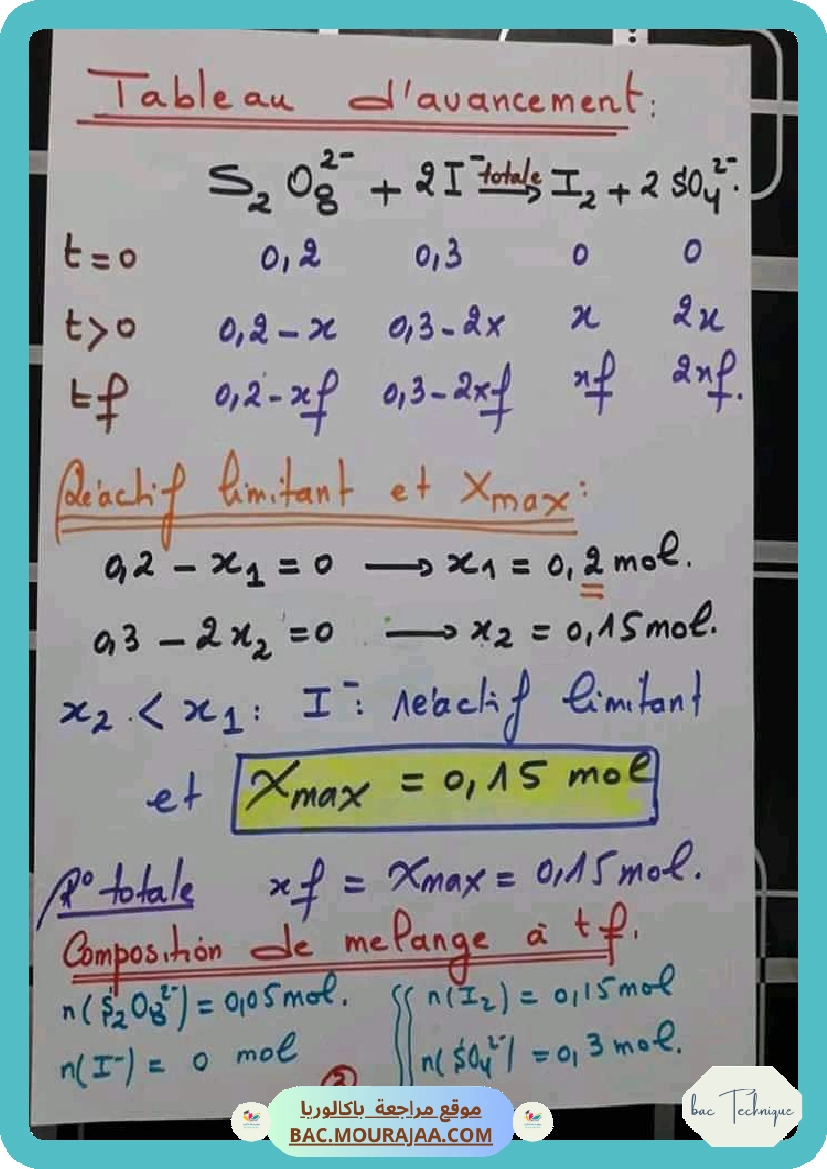 Tableau d'avancement:
S₂O₈²⁻ + 2I⁻ totale→ I₂ + 2SO₄²⁻.
t=0 0,2 0,3 0 0
t>0 0,2-x 0,3-2x x 2x
tf 0,2-xf 0,3-2xf xf 2xf.
Réactif limitant et Xmax:
0,2 - x₁ = 0 → x₁ = 0,2 mol.
0,3 - 2x₂ = 0 → x₂ = 0,15 mol.
x₂ < x₁: I⁻: réactif limitant
et Xmax = 0,15 mol
R° totale xf = Xmax = 0,15 mol.
Composition de melange à tf.
n(S₂O₈²⁻) = 0,05 mol. n(I₂) = 0,15 mol
n(I⁻) = 0 mol n(SO₄²⁻) = 0,3 mol.
موقع مراجعة باكالوريا
BAC.MOURAJAA.COM
bac Technique